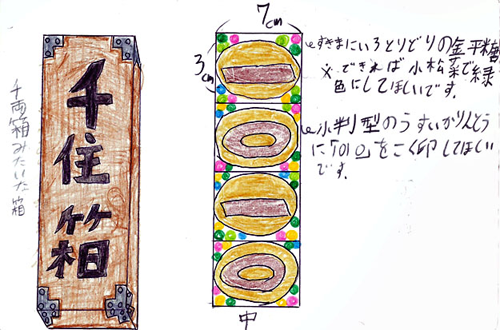 千両箱みたいな箱
千住箱
7cm
3cm
すきまにいろとりどりの金平糖
※できれば小松菜で緑
色にしてほしいです。
小判型のうすいかりんとう
に をこく印してほしい
です。
中